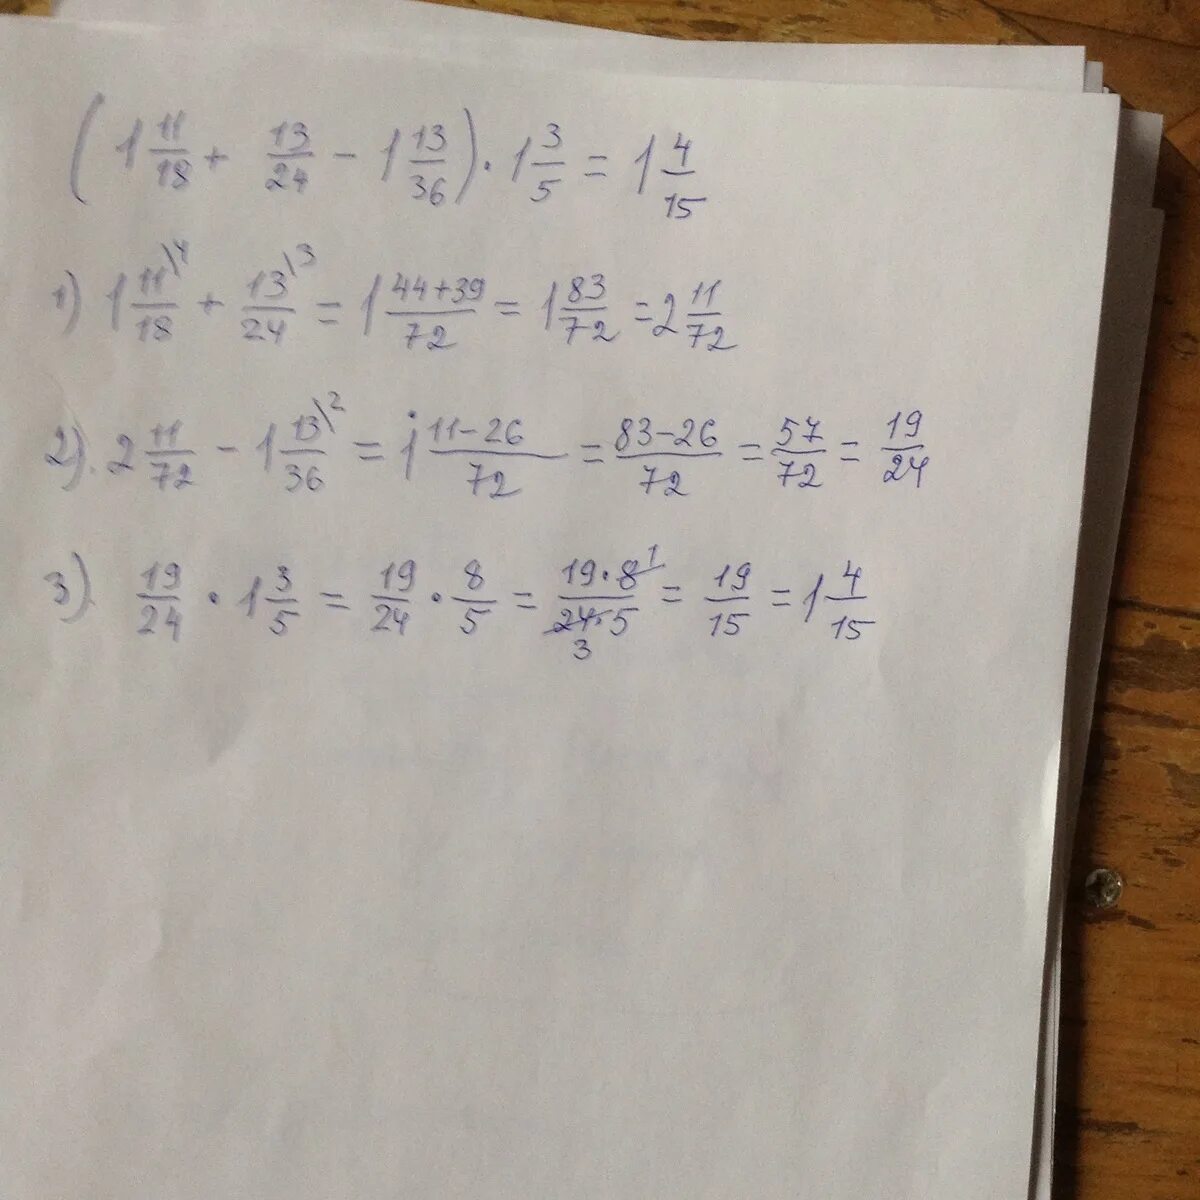 (1 11/18 + 13/24 - 1 13/36) · 1 3/5 = 1 4/15
1) 1 11\4/18 + 13\3/24 = 1 44+39/72 = 1 83/72 = 2 11/72
2). 2 11/72 - 1 13\2/36 = 1̇ 11-26/72 = 83-26/72 = 57/72 = 19/24
3). 19/24 · 1 3/5 = 19/24 · 8/5 = 19·8 1/24·5 3 = 19/15 = 1 4/15